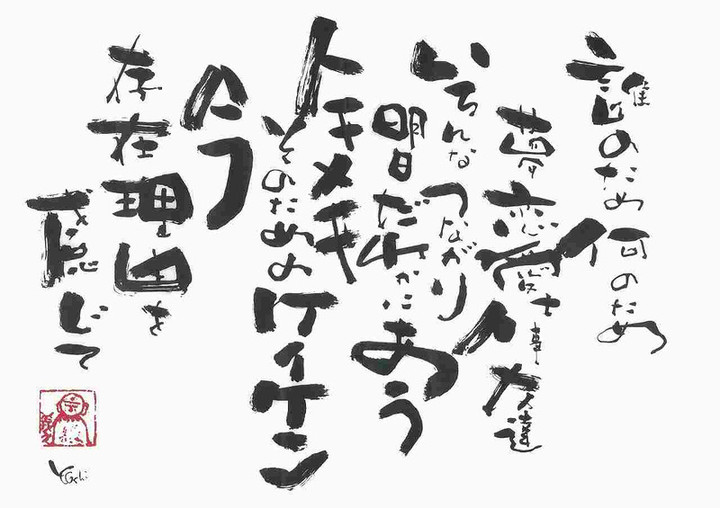 誰のため何のため
夢恋愛仕事人友達
いろんなつながり
明日だれかにあう
トキメキ
そのためのケイケン
今
存在理由を
感じて
Yoshi